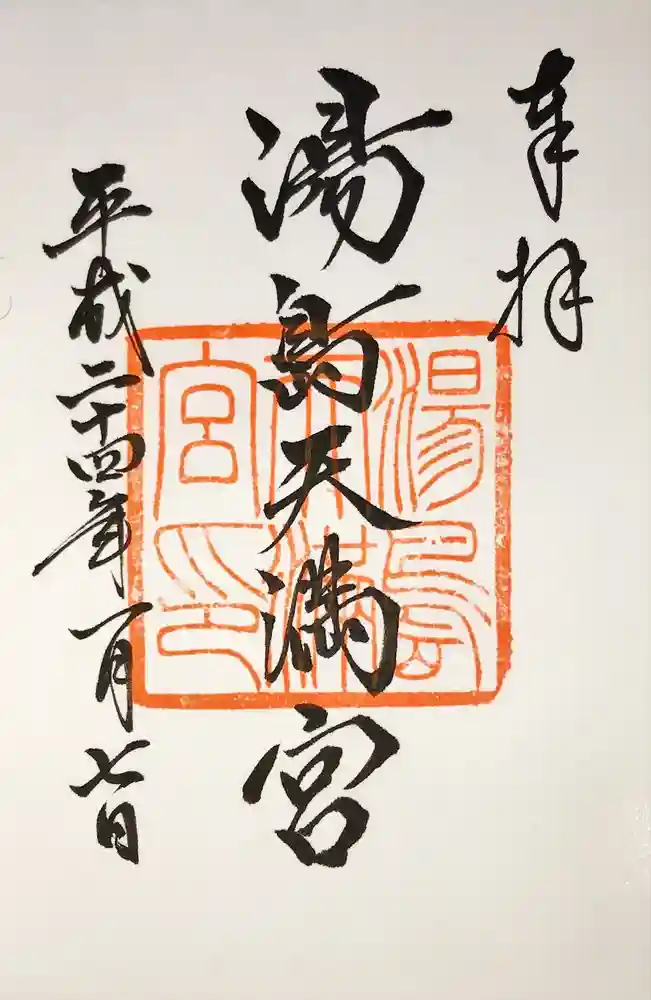 奉拝
湯島天満宮
湯島
天満
宮印
平成二十四年一月七日